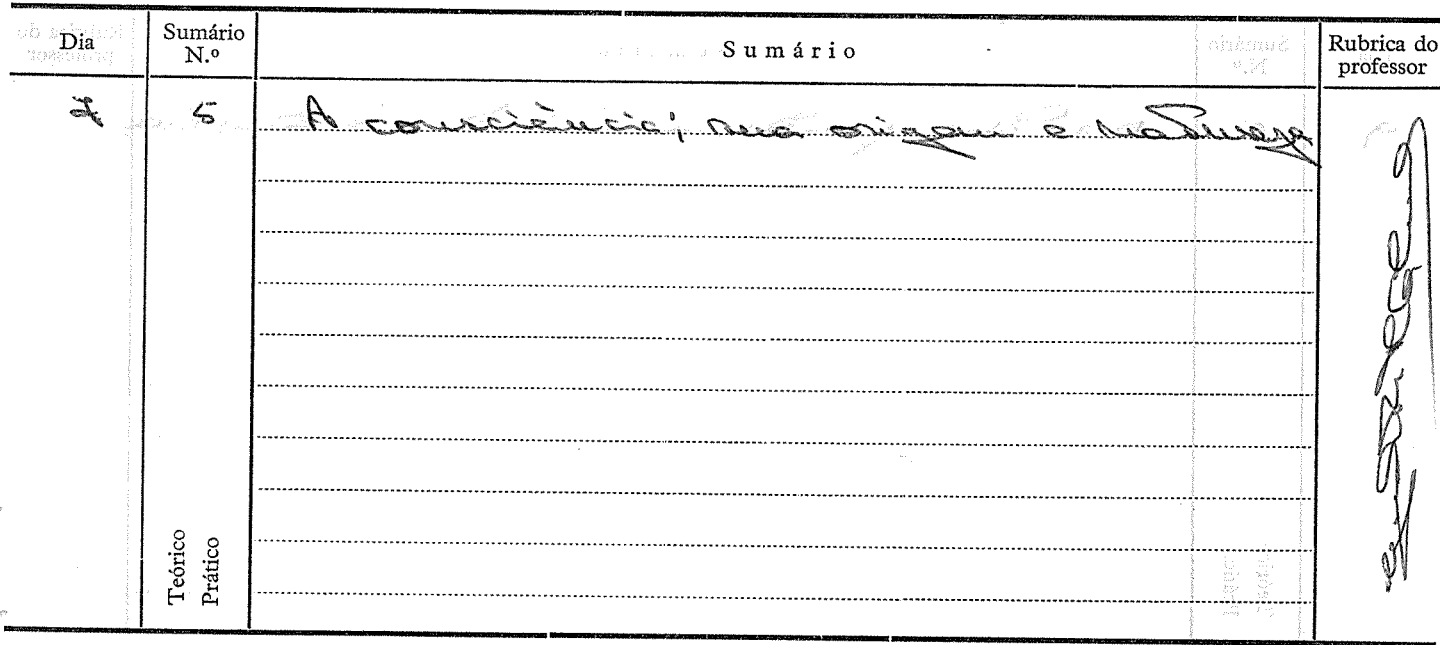 Dia
Sumário N.º
Sumário
Rubrica do professor
7
5
A consciência; sua origem e natureza
Teórico
Prático